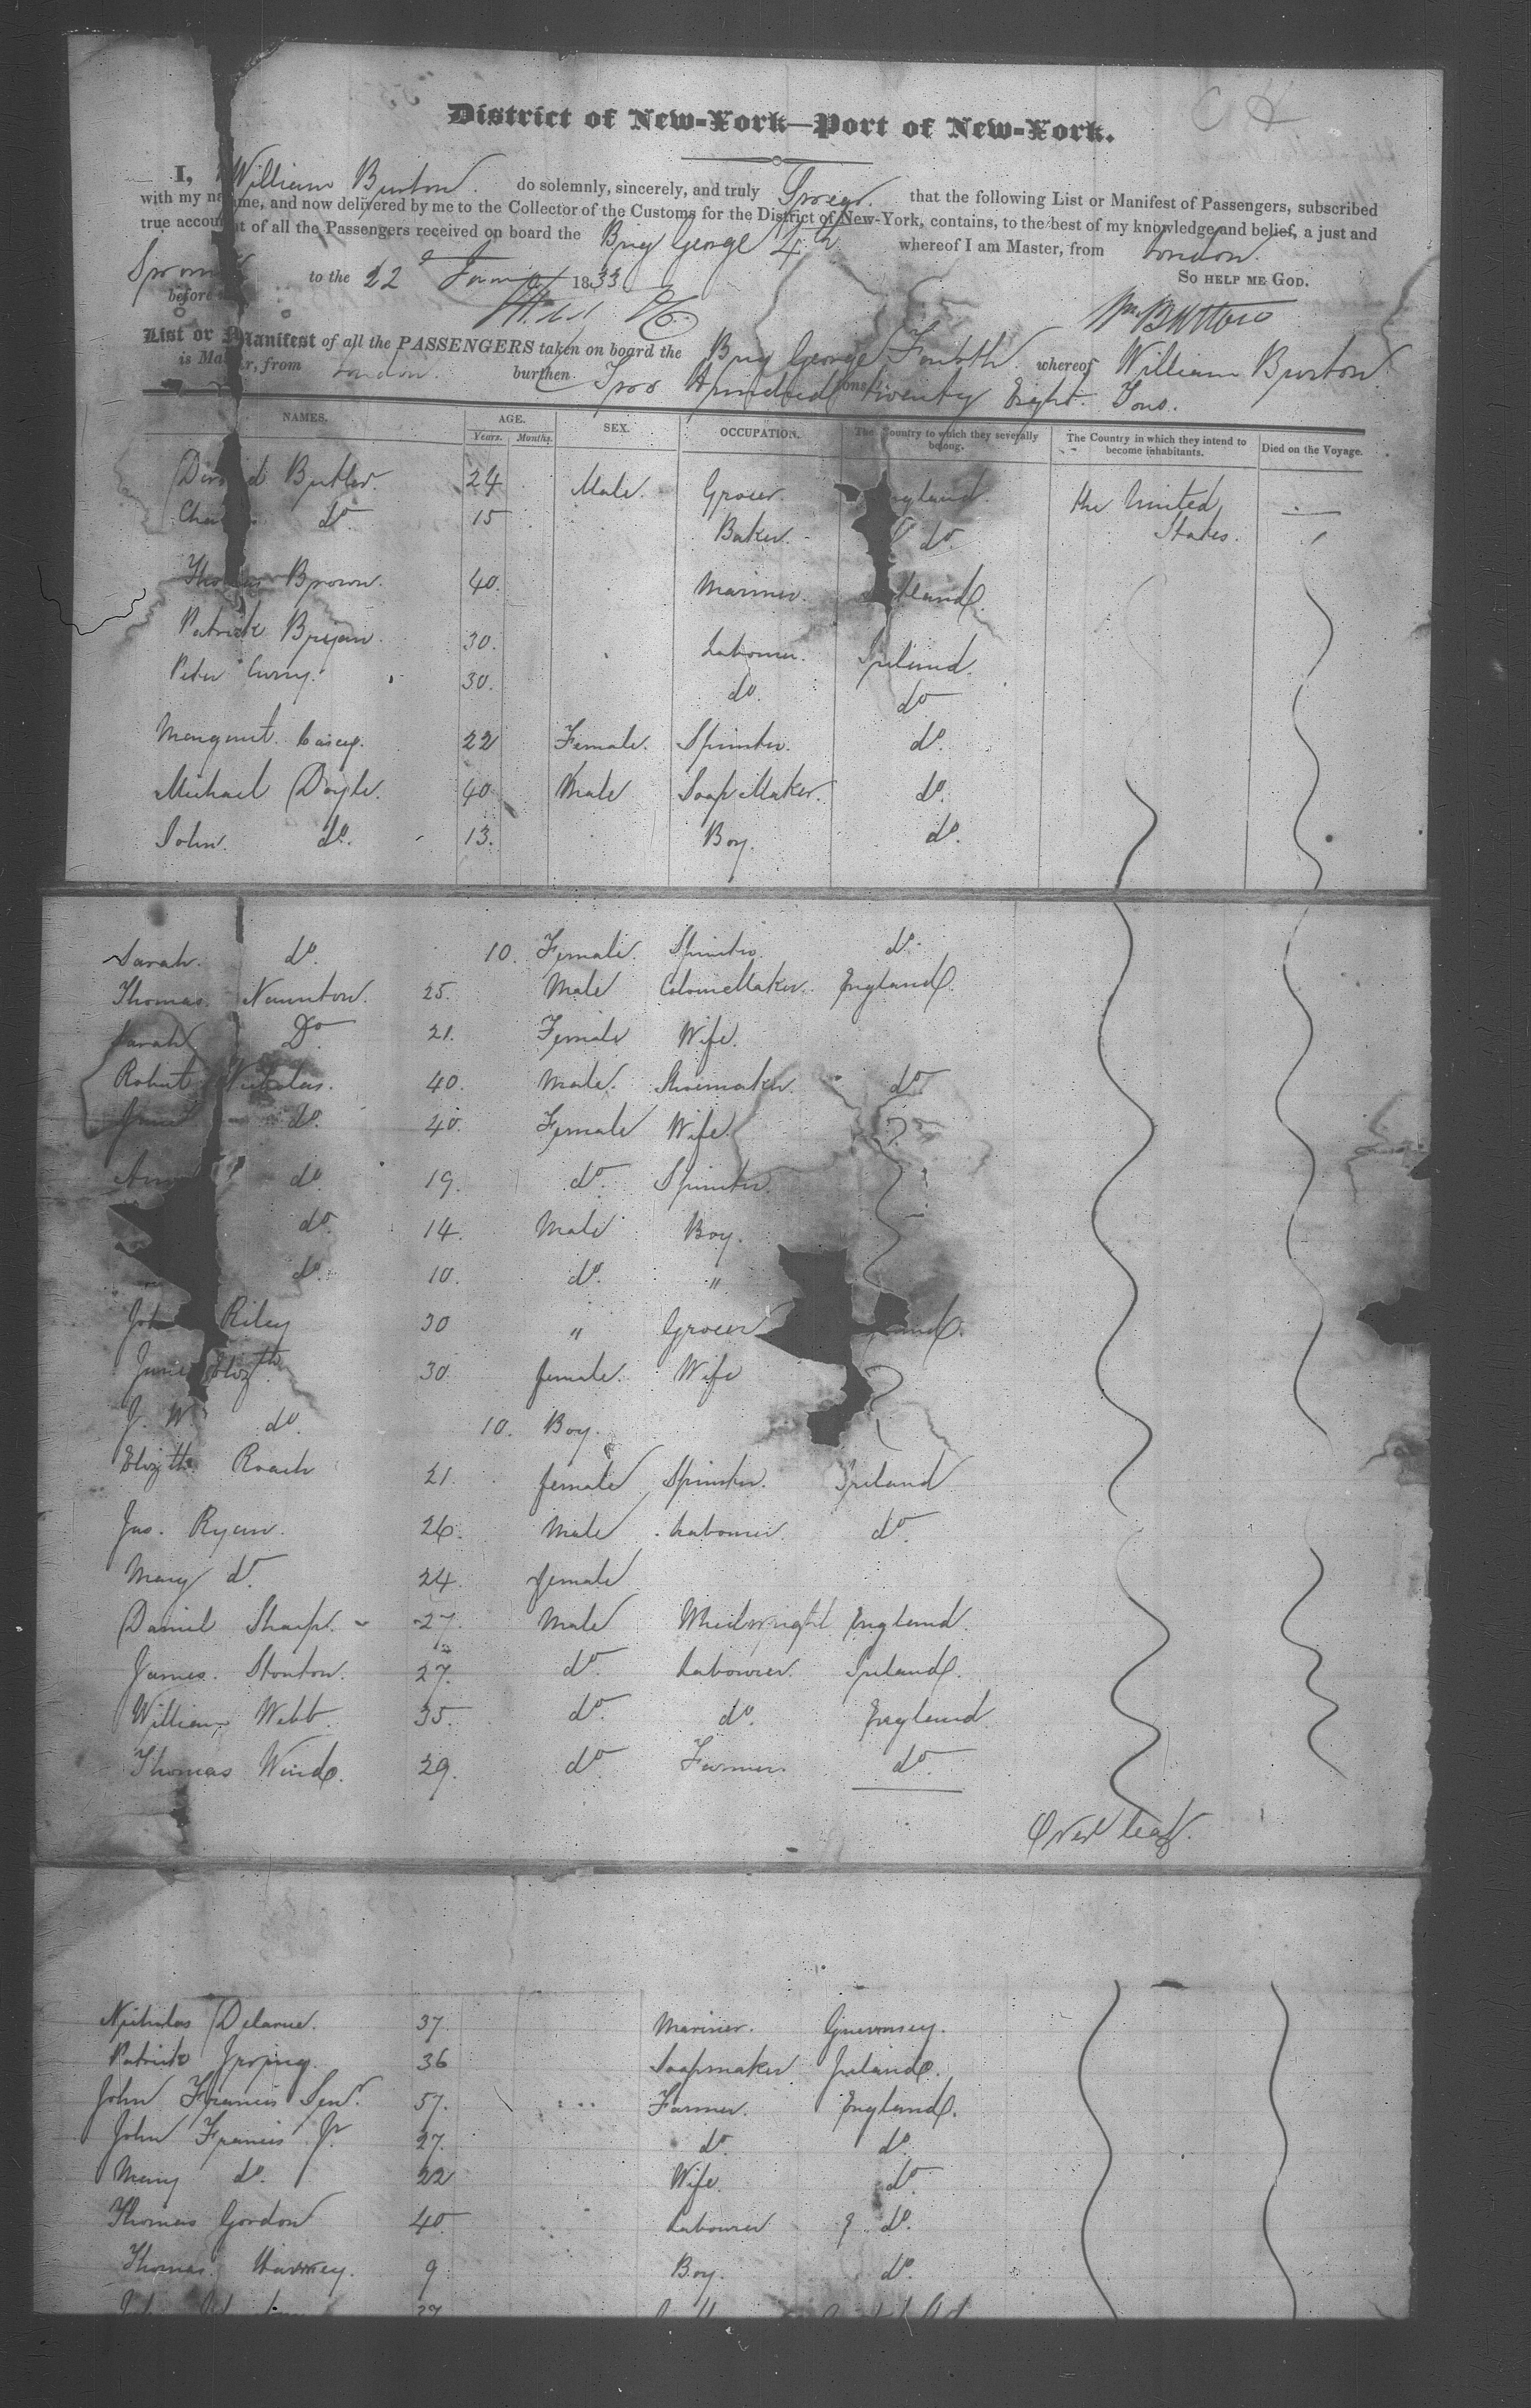 District of New-York—Port of New-York.
I, William Burton do solemnly, sincerely, and truly Swear that the following List or Manifest of Passengers, subscribed
with my name, and now delivered by me to the Collector of the Customs for the District of New-York, contains, to the best of my knowledge and belief, a just and
true account of all the Passengers received on board the Brig George 4th whereof I am Master, from London.
Sworn to the 22d 1833 So help me God.
before Wm Burton
List or Manifest of all the PASSENGERS taken on board the Brig George Fourth whereof William Burton
is Master, from London. burthen Two Hundred tons twenty Eight Tons.
NAMES. AGE. SEX. OCCUPATION. The Country to which they severally belong. The Country in which they intend to become inhabitants. Died on the Voyage.
Years. Months.
Butler. 24 Male. Grocer. England. the United States.
do 15 Baker. do
Thomas Brown. 40. Mariner.
Patrick Bryan. 30. Labourer. Ireland.
Peter Curry. 30. do. do
Margaret Casey. 22 Female. Spinster. do.
Michael Doyle. 40 Male Soap Maker. do.
John. do. 13. Boy. do.
Sarah. do. 10. Female. Spinster. do.
Thomas. Naunton. 25. Male England.
Sarah Do 21. Female Wife.
Robert Nicholas. 40. Male. Shoemaker. do
do. 40. Female Wife.
do 19. do. Spinster.
do. 14. Male Boy.
do. 10. do. "
John Riley 30 " Grocer
Jane Elizth 30. female. Wife
J. W do. 10. Boy.
Elizth Roach 21. female Spinster. Ireland
Jas. Ryan. 26. Male Labourer. do.
Mary do. 24. female
Daniel Sharp. 27. Male Wheelwright England.
James. Stonton. 27. do. Labourer. Ireland.
William Webb. 35. do. do. England.
Thomas Wind. 29. do Farmer. do.
Over leaf.
Nicholas Delarue. 37. Mariner. Guernsey.
Patrick 36 Soapmaker Ireland.
John Francis Senr. 57. Farmer. England.
John Francis Jr 27. do. do.
Mary do. 22 Wife. do.
Thomas Gordon 40. Labourer do.
Thomas. 9 Boy. do.